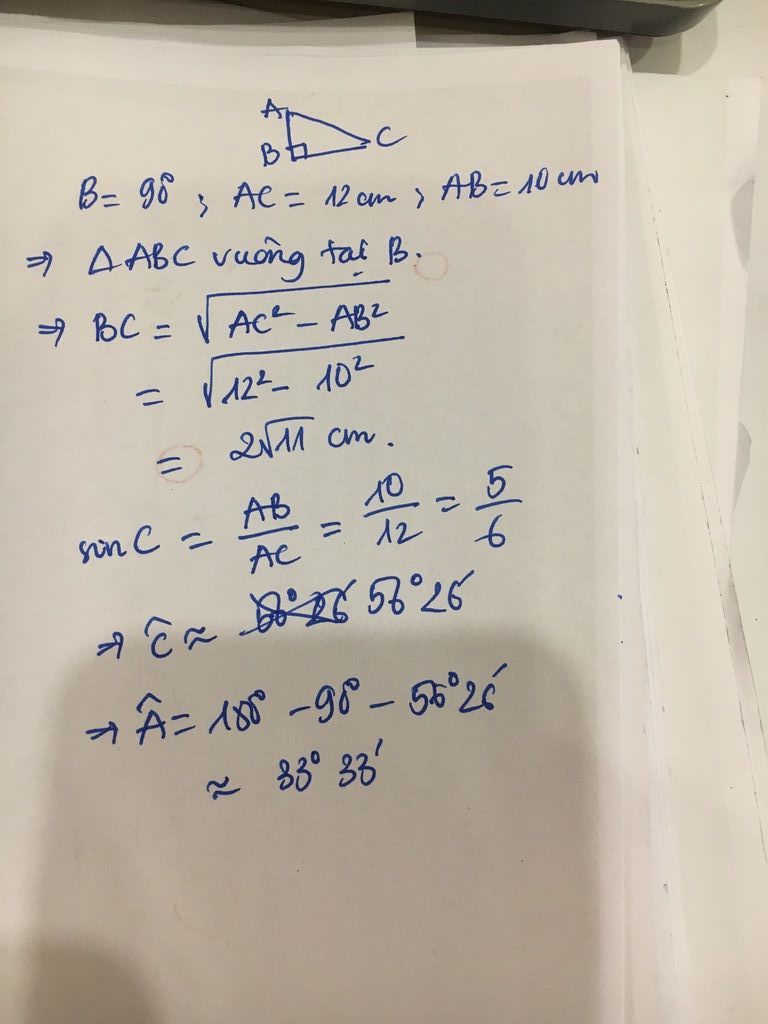 A
B C
B = 90° ; AC = 12 cm ; AB = 10 cm
⇒ △ABC vuông tại B.
⇒ BC = √(AC² − AB²)
= √(12² − 10²)
= 2√11 cm.
sin C = AB/AC = 10/12 = 5/6
⇒ Ĉ ≈ 56°26′
⇒ Â = 180° − 90° − 56°26′
≈ 33°33′